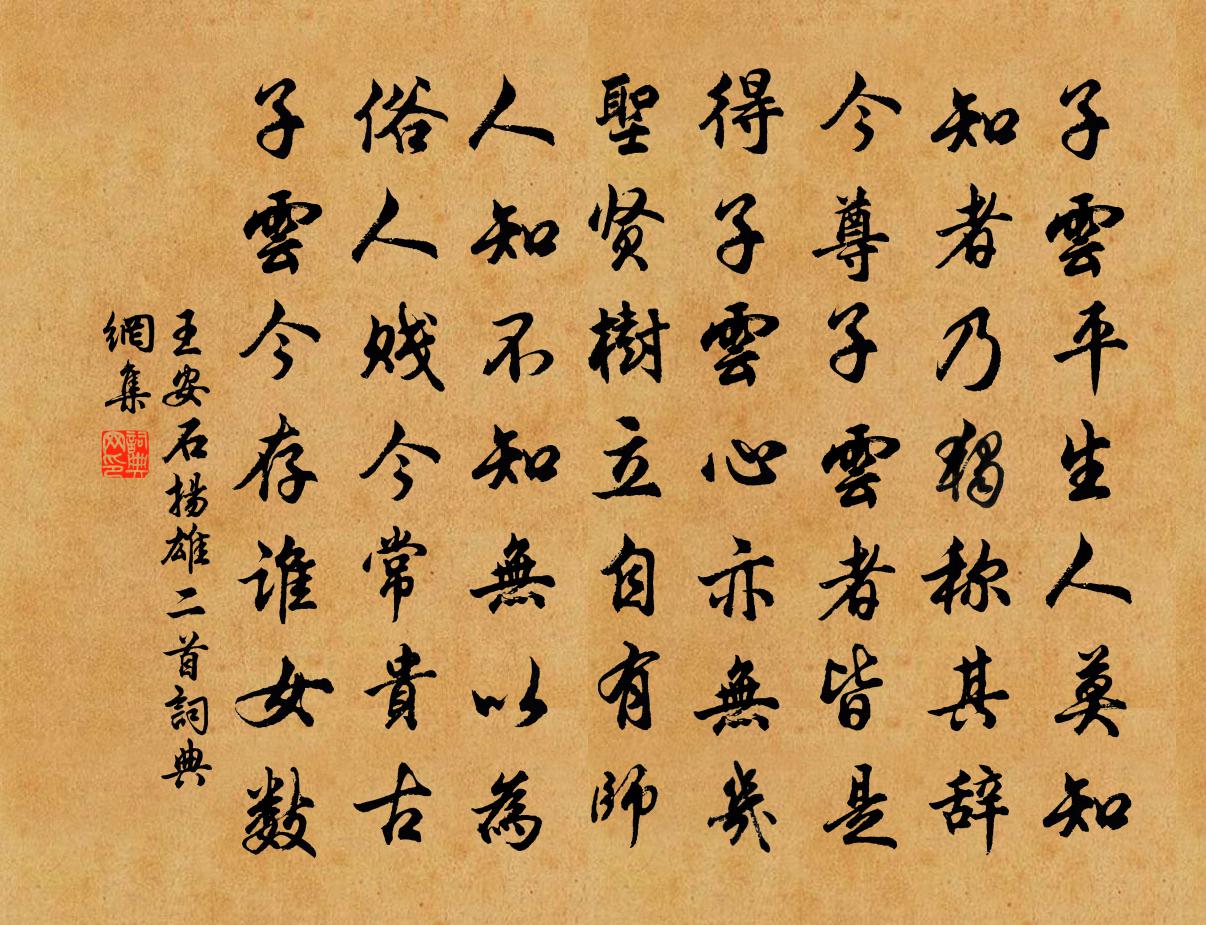 子雲平生人莫知
知者乃独称其辞
今尊子雲者皆是
得子雲心亦無幾
聖贤樹立自有師
人知不知無以為
俗人贱今常貴古
子雲今存誰女数
王安石揚雄二首詞典
網集
詞典
网印